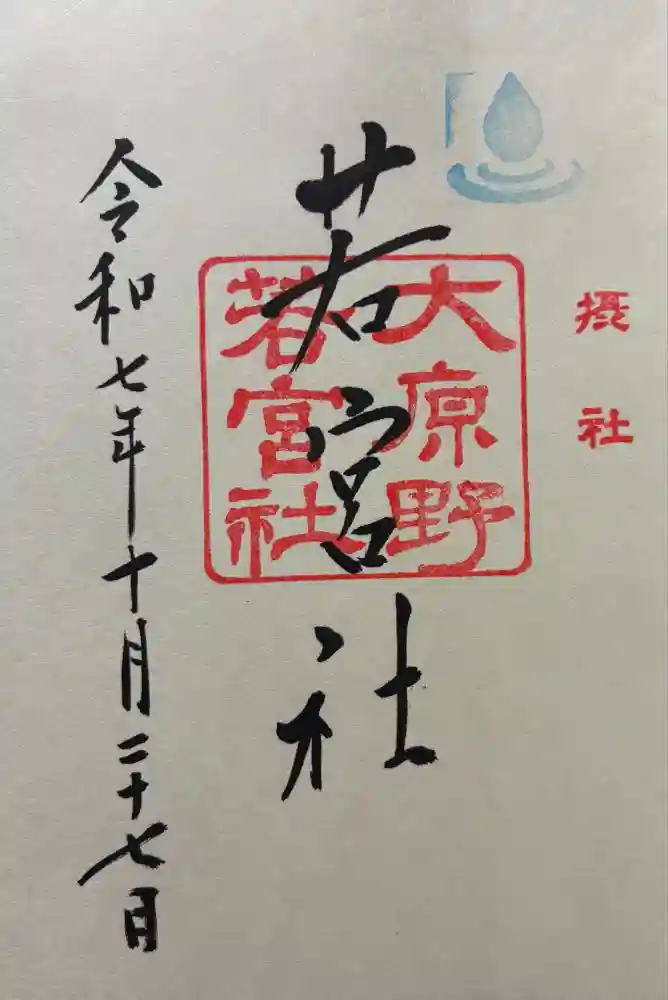 摂社
大原野
若宮社
若宮社
令和七年十月二十七日